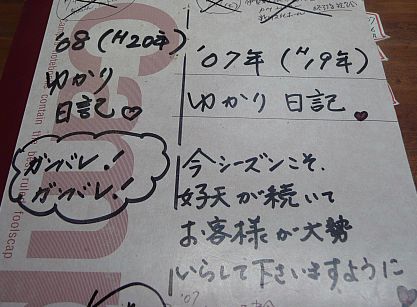 '08 (H20年)
ゆかり
日記♡
ガンバレ!
ガンバレ!
'07年 (H19年)
ゆかり 日記♥
今シーズンこそ、
好天が続いて
お客様が大勢
いらして下さいますように
Campus
notebooks contain the best ruled foolscap
'07